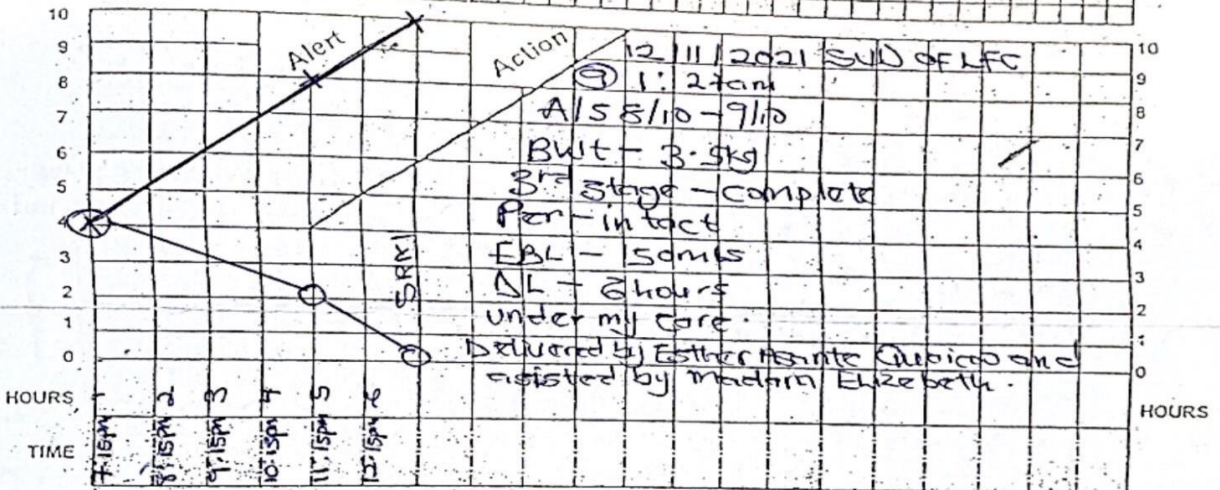 10
9
8
7
6
5
4
3
2
1
0
Alert
Action
SRM
12/11/2021 SVD OF LFC
@ 1:27am
A/S 8/10 - 9/10
BWt - 3.5kg
3rd stage - complete
Per - intact
EBL - 150mls
DL - 6 hours
under my care.
Delivered by Esther and
assisted by madam Elizebeth.
10
9
8
7
6
5
4
3
2
1
0
HOURS 1 2 3 4 5 6 HOURS
TIME 7:15pm 8:15pm 9:15pm 10:15pm 11:15pm 12:15pm